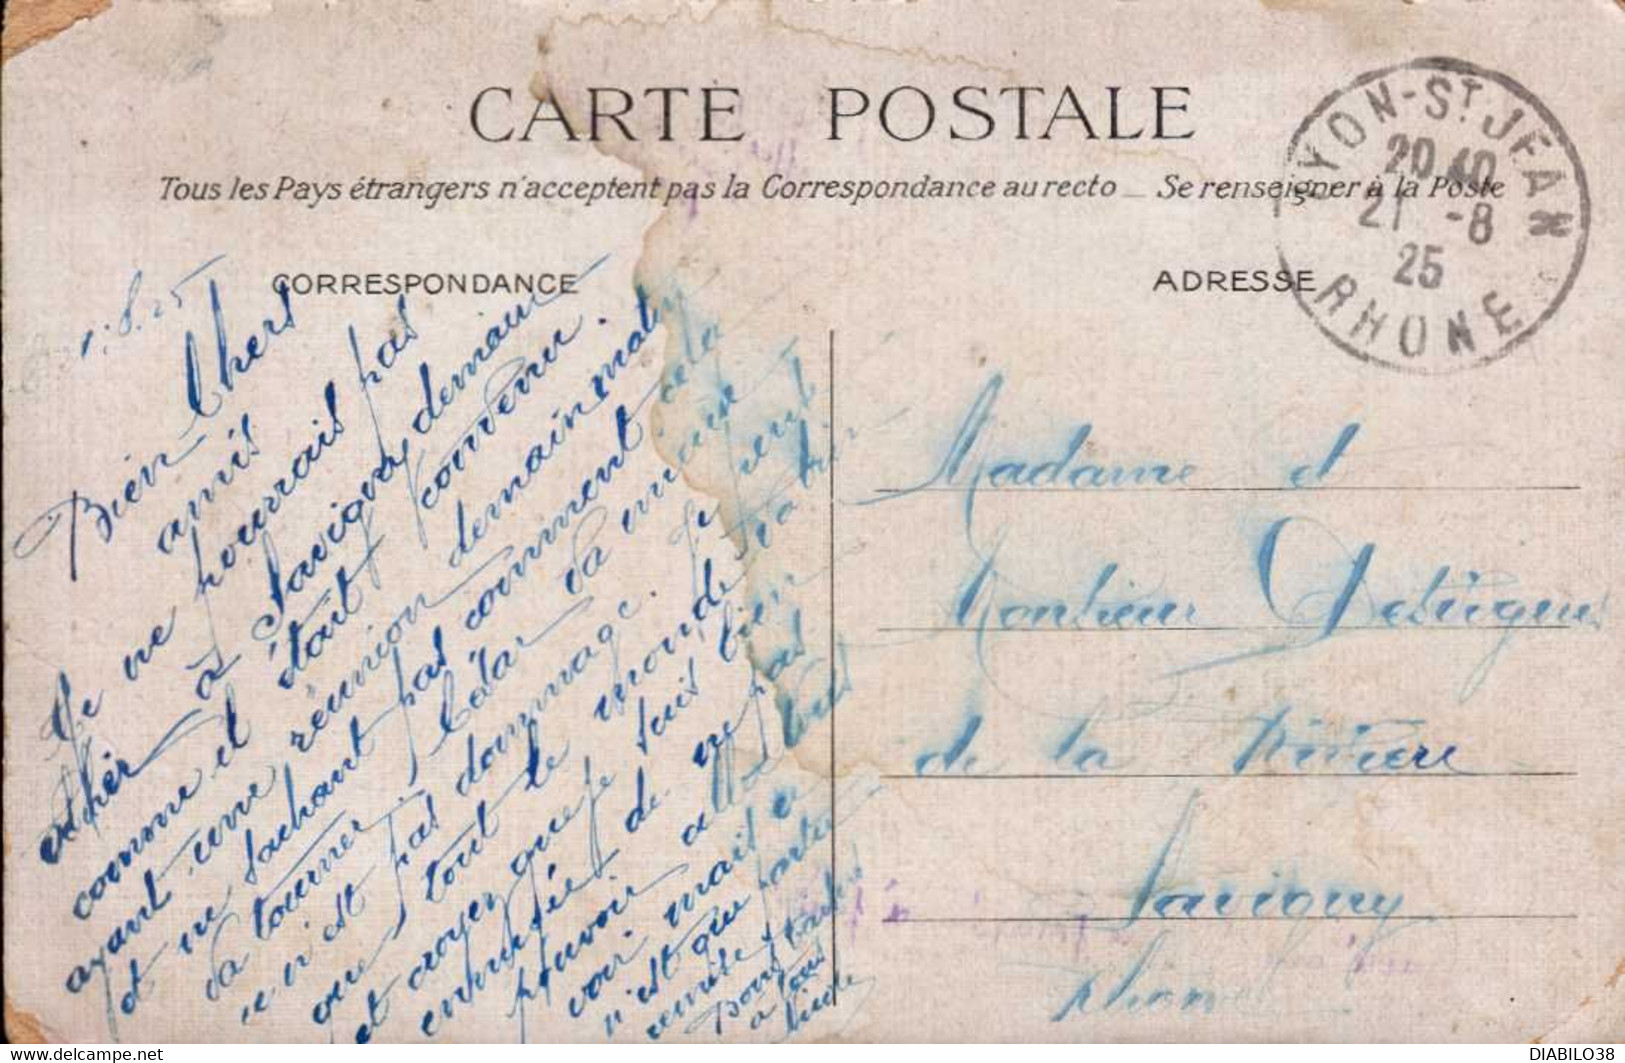 CARTE POSTALE
Tous les Pays étrangers n'acceptent pas la Correspondance au recto _ Se renseigner à la Poste
CORRESPONDANCE
ADRESSE
LYON-ST JEAN
20 40
21 -8
25
RHONE
1.8.25
Bien Chers
amis
Je ne pourrais pas
à Savigny demain
comme il était convenu.
ayant une réunion demain matin
et ne sachant pas comment cela
va tourner,
n'est pas dommage. Je
tout le monde
et croyez que je suis bien
ennuyée de ne pas
pouvoir aller vous
voir mais
n'est que partie
remise
Bons
à tous
Madame et
Monsieur
de la Rivière
Savigny
Rhône
DIABILO38